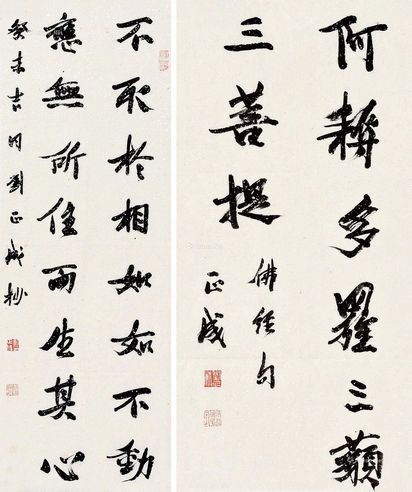 阿耨多羅三藐
三菩提
佛經句
正成
不取於相如如不動
應無所住而生其心
癸未吉劉正成抄